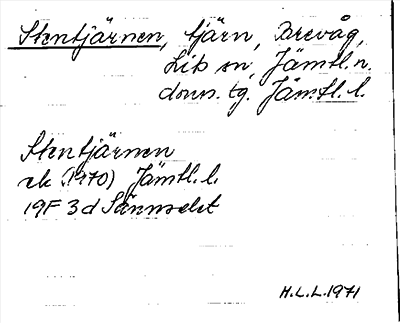 Stentjärnen, tjärn, Brevåg,
Lits sn, Jämtl. n.
doms. tg. Jämtl. l.
Stentjärnen
ek (1970) Jämtl. l.
19F 3d
H.L.L. 1971